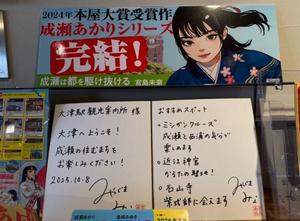 2024年 本屋大賞受賞作
成瀬あかりシリーズ
完結!
成瀬は都を駆け抜ける 宮島未奈
大津駅観光案内所 様
大津へようこそ!
成瀬の住むまちを
お楽しみください!
2025.10.8
みやじま
みな
おすすめスポット
・ミシガンクルーズ
成瀬と西浦の気分が
楽しめます
・近江神宮
かるたの聖地!
・石山寺
紫式部に会えます
みやじま
みな
成瀬あかり